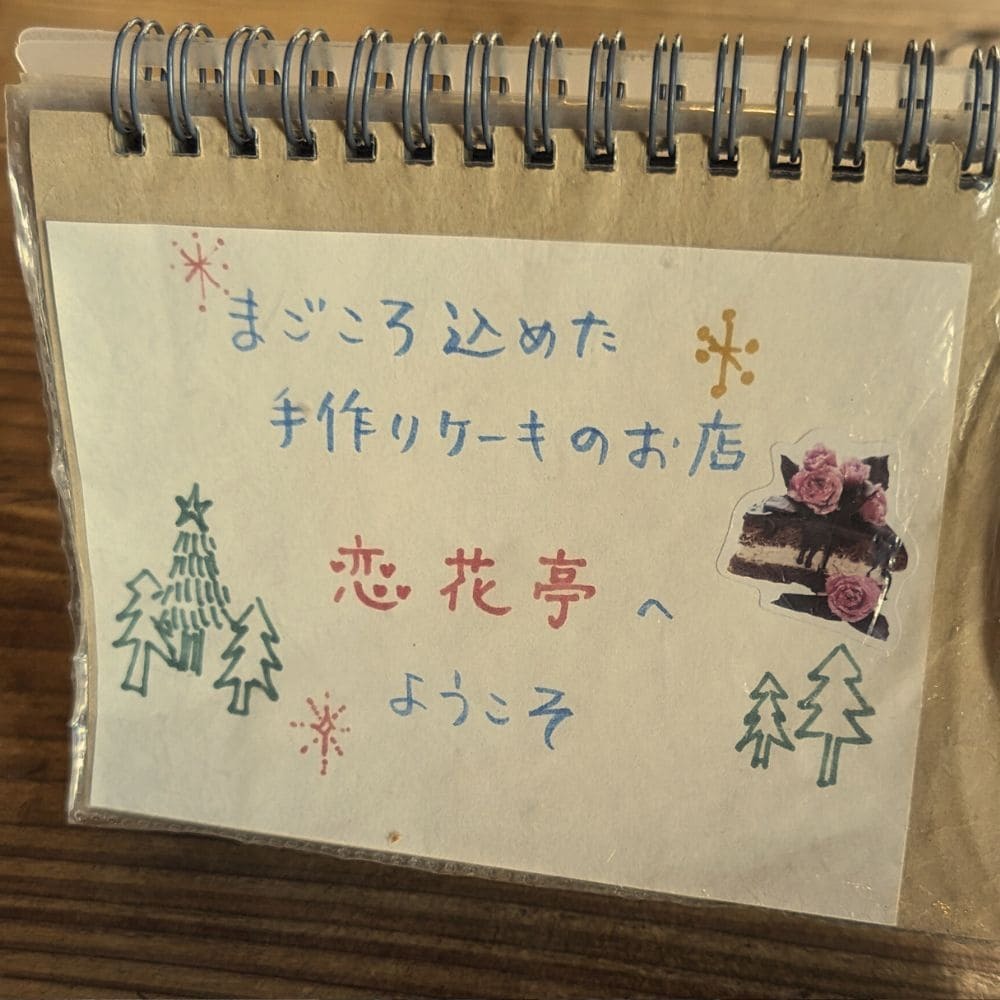 まごころ込めた
手作りケーキのお店
恋花亭へ
ようこそ